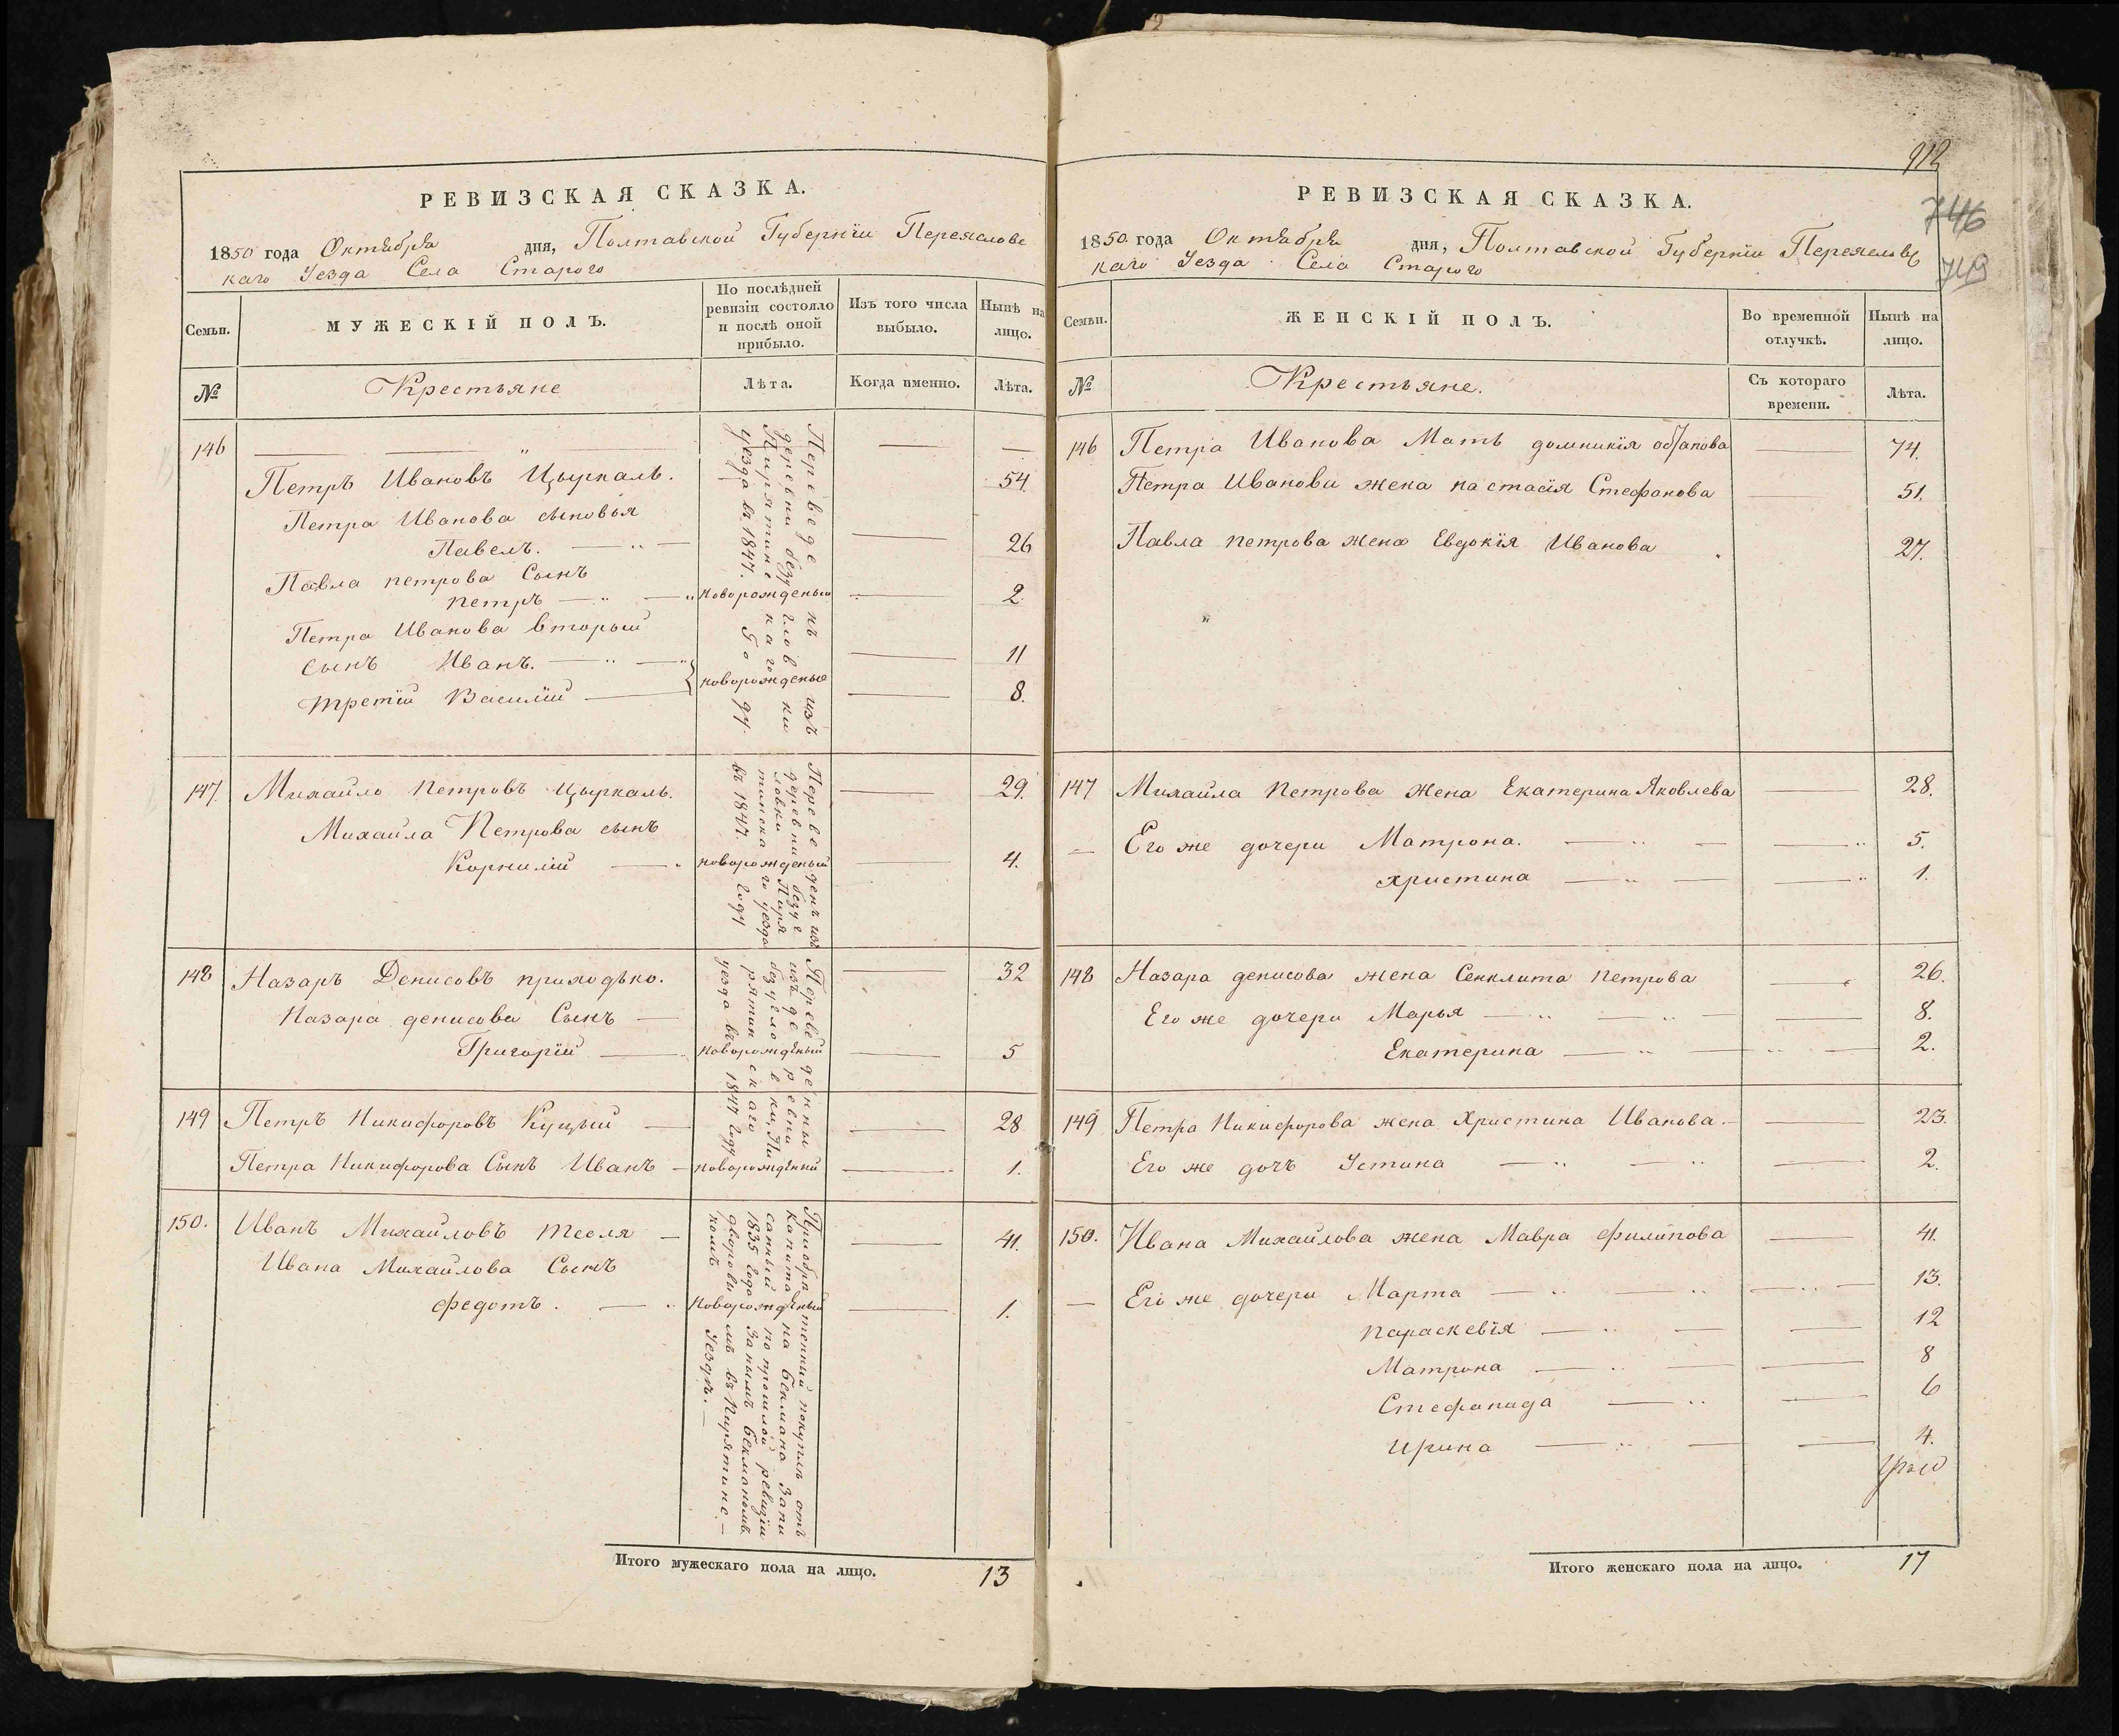 РЕВИЗСКАЯ СКАЗКА.
1850 года Октября дня, Полтавской Губерніи Переяславс
каго Уезда Села Старого
Семьи.
МУЖЕСКІЙ ПОЛЪ.
По послѣдней
ревизіи состояло
и послѣ оной
прибыло.
Изъ того числа
выбыло.
Нынѣ на
лицо.
№
Крестьяне
Лѣта.
Когда именно.
Лѣта.
146
Петръ Ивановъ Цыркаль. 54.
Петра Иванова сыновья
Павелъ. 26
Павла петрова Сынъ
петръ новорожденый 2.
Петра Иванова вторый
сынъ Иванъ. 11
новорожденые
третій Василій 8.
Переведенъ изъ
деревни безугловки
Пирятинскаго
уезда въ 1847. Году.
147. Михайло Петровъ Цыркаль. 29.
Михаила Петрова сынъ
Корнилій новорожденый 4.
Переведенъ изъ
деревни безуг
ловки Пиря
тинскаго уезда
въ 1847 году
148 Назаръ Денисовъ приходько. 32
Назара денисова Сынъ
Григорій новорожденый 5
149 Петръ Никифоровъ Куцый 28
Петра Никифорова Сынъ Иванъ новорожденый 1.
Переведенны
изъ деревни
безугловки, Пи
рятинскаго
уезда въ 1847 году
150. Иванъ Михайловъ Тесля 41.
Ивана Михайлова Сынъ
Федотъ. новорожденый 1.
Приобретенный покупкъ отъ
капитана Бекмана Запи
санный по прошлой ревизіи
1835 года Занимъ Бекманомъ
дворовымъ въ Пирятинс
комъ Уездѣ.
Итого мужескаго пола на лицо. 13
912
746
749
РЕВИЗСКАЯ СКАЗКА.
1850 года Октября дня, Полтавской Губерніи Переяславс
каго Уезда Села Старого
Семьи.
ЖЕНСКІЙ ПОЛЪ.
Во временной
отлучкѣ.
Нынѣ на
лицо.
№
Крестьяне.
Съ котораго
времени.
Лѣта.
146 Петра Иванова Мать домникія 74.
Петра Иванова жена настасія Стефанова 51.
Павла петрова жена Евдокія Иванова 27.
147 Михайла Петрова Жена Екатерина Яковлева 28.
Его же дочери Матрона. 5.
Христина 1.
148 Назара денисова жена Сенклита петрова 26.
Его же дочери Марья 8.
Екатерина 2.
149 Петра Никифорова жена Христина Иванова. 23.
Его же дочъ Устина 2.
150. Ивана Михайлова жена Мавра филипова 41.
Его же дочери Марта 13.
параскевія 12
Матрона 8
Стефанида 6
Ирина 4.
Итого женскаго пола на лицо. 17